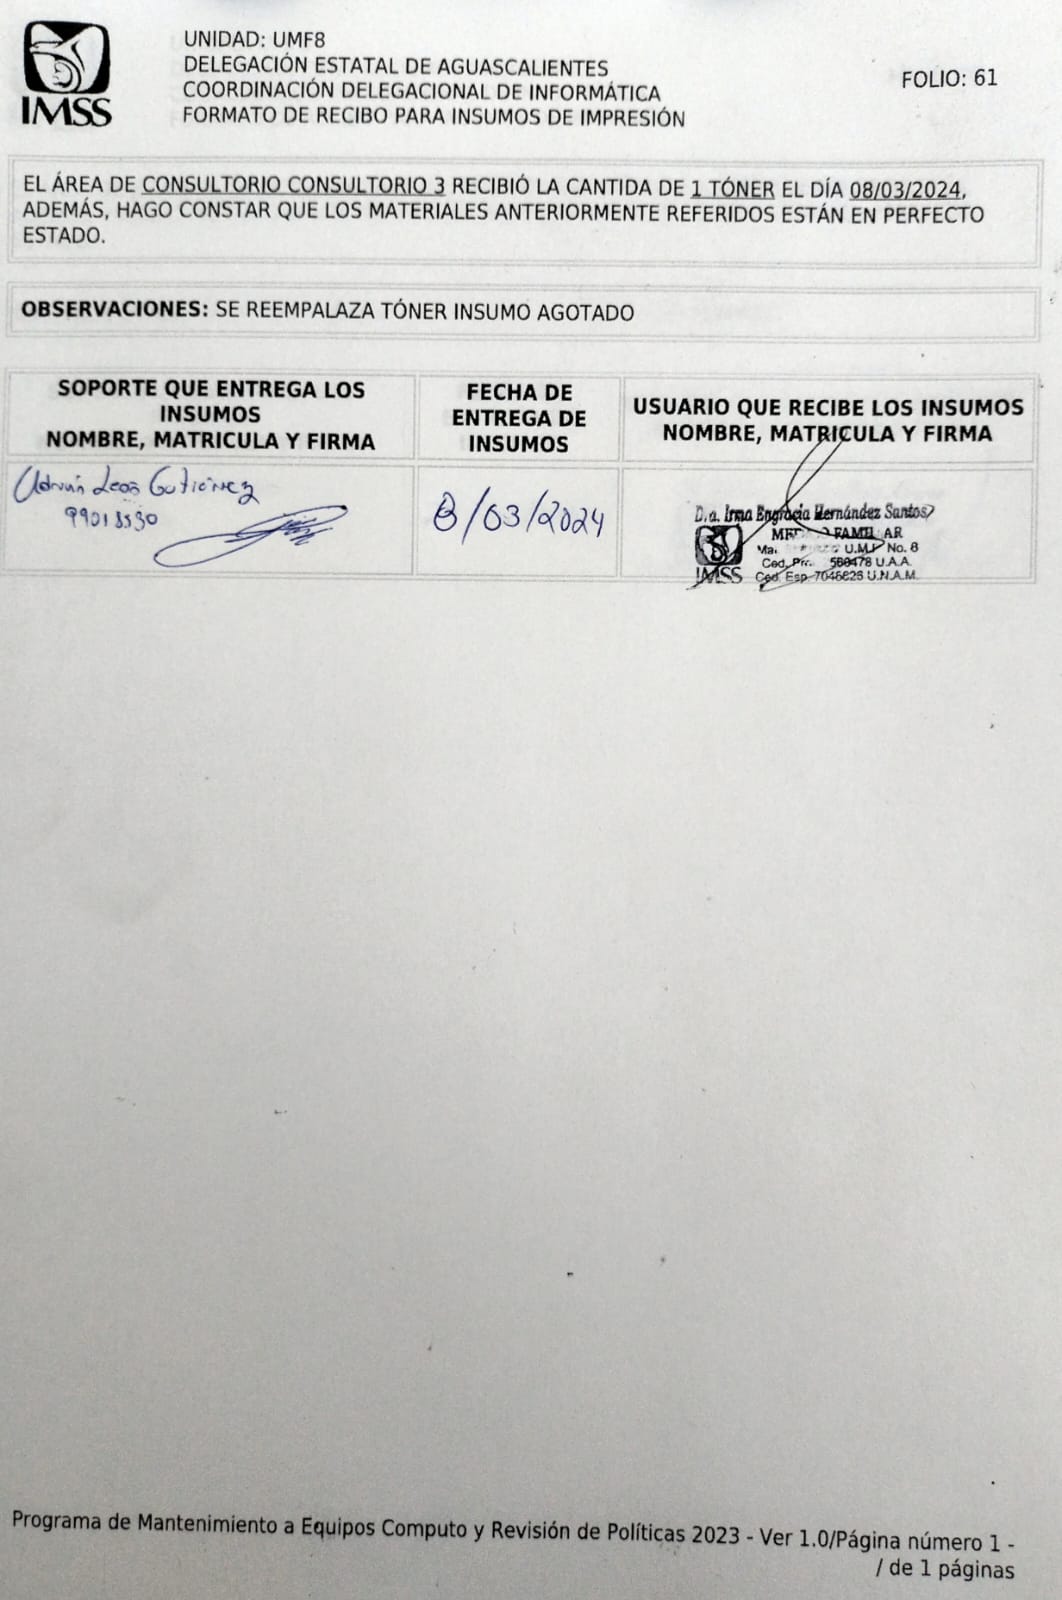 IMSS
UNIDAD: UMF8
DELEGACIÓN ESTATAL DE AGUASCALIENTES
COORDINACIÓN DELEGACIONAL DE INFORMÁTICA
FORMATO DE RECIBO PARA INSUMOS DE IMPRESIÓN
FOLIO: 61
EL ÁREA DE CONSULTORIO CONSULTORIO 3 RECIBIÓ LA CANTIDA DE 1 TÓNER EL DÍA 08/03/2024,
ADEMÁS, HAGO CONSTAR QUE LOS MATERIALES ANTERIORMENTE REFERIDOS ESTÁN EN PERFECTO
ESTADO.
OBSERVACIONES: SE REEMPALAZA TÓNER INSUMO AGOTADO
SOPORTE QUE ENTREGA LOS
INSUMOS
NOMBRE, MATRICULA Y FIRMA
FECHA DE
ENTREGA DE
INSUMOS
USUARIO QUE RECIBE LOS INSUMOS
NOMBRE, MATRICULA Y FIRMA
Adrián Leos Gutiérrez
8/03/2024
Irma Engracia Hernández Santos
IMSS
U.M.F. No. 8
Ced. U.A.A.
Ced. Esp. 7046826 U.N.A.M.
Programa de Mantenimiento a Equipos Computo y Revisión de Políticas 2023 - Ver 1.0/Página número 1 -
/ de 1 páginas